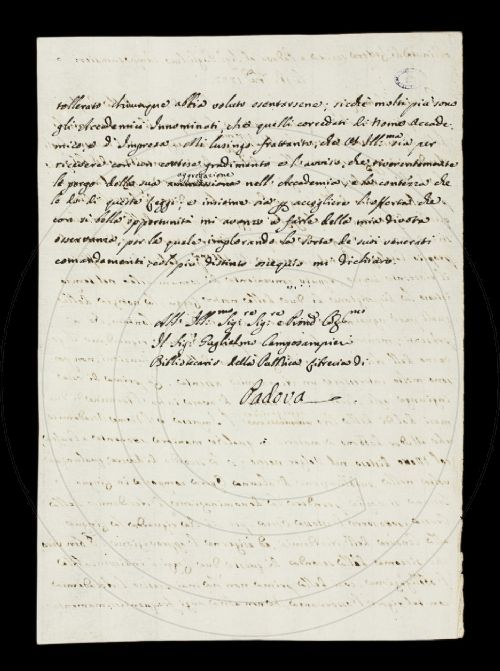 tollerato chiunque abbia voluto esentarsene; sicchè molti più sono
gli Accademici Innominati, che quelli corredati di Nome Accade-
mico, e d'Impresa. Mi lusingo frattanto, che VS Ill:ma sia per
ricevere con un cortese gradimento e l'avviso, che riverentemente
le porgo della sua aggregazione nell'Accademia, e la contezza che
le do di queste Leggi, e insieme sia p accogliere l'offerta, che
con sì bella opportunità mi avanzo a farle della mia divota
osservanza, per la quale implorando la sorte de suoi venerati
comandamenti, col più distinto ossequio mi dichiaro
All' Ill:mo Sigr Sigr e Pron: Col:mo
Il Sigr Guglielmo Camposampier
Bibliotecario della Pubblica Libreria di
Padova